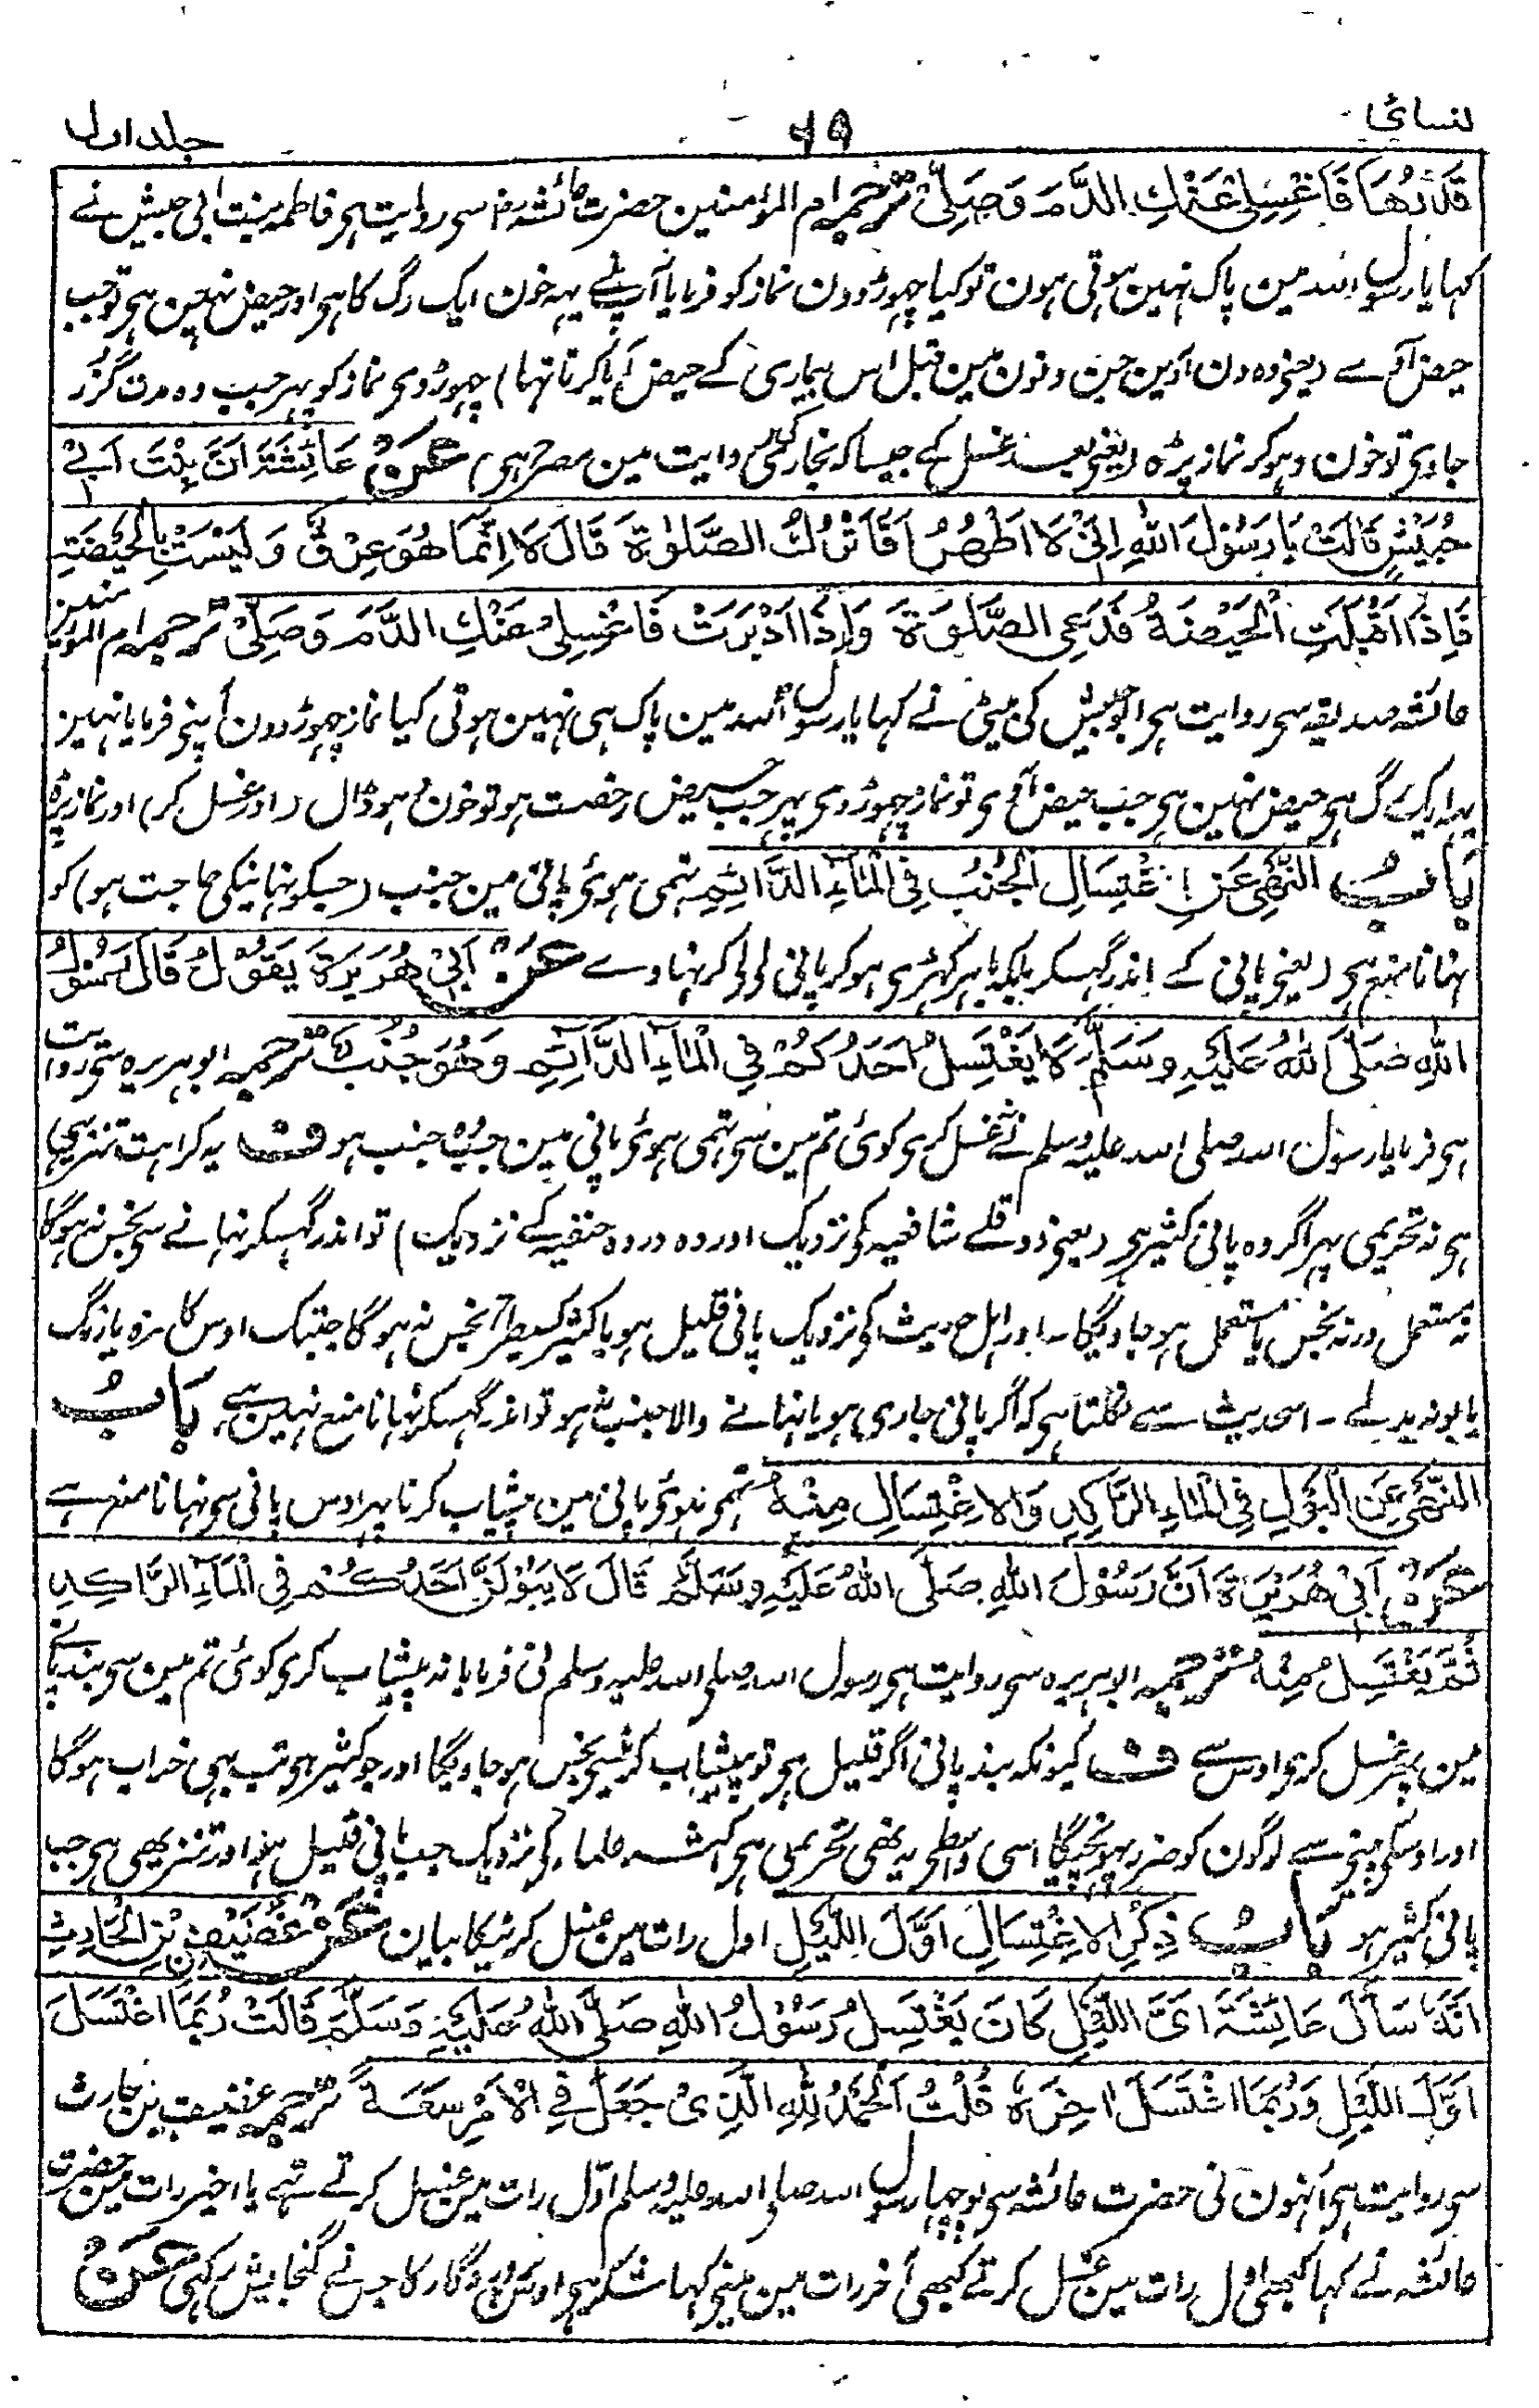 نسائی
۶۹
جلد اول
قَدْرُهَا فَاغْسِلِیْ عَنْكِ الدَّمَ وَصَلِّیْ ترجمہ ام المؤمنین حضرت عائشہ رض سی روایت ہی فاطمہ بنت ابی حبیش نے
کہا یا رسول اللہ مین پاک نہین ہوتی ہون تو کیا چھوڑ دون نماز کو فرمایا آپ نے یہہ خون ایک رگ کا ہی اور حیض نہین ہی تو جب
حیض آوے (یعنی وہ دن آوین جن دنون مین قبل اس بیماری کے حیض آیا کرتا تہا) چہوڑ دی نماز کو پہر جب وہ مدت گزر
جاوی تو خون دہو کر نماز پڑہ (یعنی بعد غسل کے جیسا کہ بخاری کی روایت مین مصرح ہی) عَنْ عَائِشَةَ اَنَّ بِنْتَ اَبِیْ
حُبَیْشٍ قَالَتْ یَا رَسُوْلَ اللهِ اِنِّیْ لَا اَطْهُرُ اَفَاَتْرُكُ الصَّلٰوةَ قَالَ لَا اِنَّمَا هُوَ عِرْقٌ وَلَیْسَتْ بِالْحَیْضَةِ
فَاِذَا اَقْبَلَتِ الْحَیْضَةُ فَدَعِی الصَّلٰوةَ وَاِذَا اَدْبَرَتْ فَاغْسِلِیْ عَنْكِ الدَّمَ وَصَلِّیْ ترجمہ ام المؤمنین
عائشہ صدیقہ سی روایت ہی ابو حبیش کی بیٹی نے کہا یا رسول اللہ مین پاک ہی نہین ہوتی کیا نماز چہوڑ دون آپنی فرمایا نہین
یہہ ایک رگ ہی حیض نہین ہی جب حیض آوی تو نماز چہوڑ دی پہر جب حیض رخصت ہو تو خون دہو ڈال (اور غسل کر) اور نماز پڑہ
بَابُ النَّهْیِ عَنِ اغْتِسَالِ الْجُنُبِ فِی الْمَآءِ الدَّائِمِ تہمی ہوئی پانی مین جنب (جسکو نہانیکی حاجت ہو) کو
نہانا منع ہی (یعنی پانی کے اندر گہسکر بلکہ باہر کہڑی ہو کر پانی لی لی کر نہاوے عَنْ اَبِیْ هُرَیْرَةَ یَقُوْلُ قَالَ رَسُوْلُ
اللهِ صَلَّی اللهُ عَلَیْهِ وَسَلَّمَ لَا یَغْتَسِلُ اَحَدُكُمْ فِی الْمَآءِ الدَّآئِمِ وَهُوَ جُنُبٌ ترجمہ ابو ہریرہ سی روایت
ہی فرمایا رسول اللہ صلی اللہ علیہ وسلم نے نہ غسل کری کوئی تم مین سی تہمی ہوئی پانی مین جب وہ جنب ہو ف یہ کراہت تنزیہی
ہی نہ تحریمی پہر اگر وہ پانی کثیر ہی (یعنی دو قلے شافعیہ کی نزدیک اور دہ در دہ حنفیہ کے نزدیک) تو اندر گہسکر نہانے سی نجس نہ ہو گا
نہ مستعمل ورنہ نجس یا مستعمل ہو جاویگا۔ اور اہل حدیث کی نزدیک پانی قلیل ہو یا کثیر کسیطرح نجس نہ ہو گا جبتک اوس کا مزہ یا رنگ
یا بو نہ بدلے ۔ اس حدیث سے نکلتا ہی کہ اگر پانی جاری ہو یا نہانے والا جنب نہ ہو تو اندر گہسکر نہانا منع نہین ہے بَابُ
النَّهْیِ عَنِ الْبَوْلِ فِی الْمَاءِ الرَّاكِدِ وَالاِغْتِسَالِ مِنْهُ تہمی ہوئی پانی مین پیشاب کرنا پہر اوس پانی سی نہانا منع ہے
عَنْ اَبِیْ هُرَیْرَةَ اَنَّ رَسُوْلَ اللهِ صَلَّی اللهُ عَلَیْهِ وَسَلَّمَ قَالَ لَا یَبُوْلَنَّ اَحَدُكُمْ فِی الْمَآءِ الرَّاكِدِ
ثُمَّ یَغْتَسِلُ مِنْهُ ترجمہ ابو ہریرہ سی روایت ہی رسول اللہ صلی اللہ علیہ وسلم نی فرمایا نہ پیشاب کری کوئی تم مین سی بند پانی
مین پہر غسل کری اوس سے ف کیونکہ بند پانی اگر قلیل ہی تو پیشاب کرنیسی نجس ہو جاویگا اور جو کثیر ہی تب بہی خراب ہو گا
اور اوسکی پینی سے لوگون کو ضرر پہونچیگا اسی واسطی یہ نہی تحریمی ہی اکثر علماء کی نزدیک جب پانی قلیل ہو اور تنزیہی ہی جب
پانی کثیر ہو بَابُ ذِكْرِ الاِغْتِسَالِ اَوَّلَ اللَّیْلِ اول رات مین غسل کرنیکا بیان عَنْ غُضَیْفِ بْنِ الْحَارِثِ
اَنَّهٗ سَأَلَ عَائِشَةَ اَیَّ اللَّیْلِ كَانَ یَغْتَسِلُ رَسُوْلُ اللهِ صَلَّی اللهُ عَلَیْهِ وَسَلَّمَ قَالَتْ رُبَمَا اغْتَسَلَ
اَوَّلَ اللَّیْلِ وَرُبَمَا اغْتَسَلَ اٰخِرَهٗ قُلْتُ اَلْحَمْدُ لِلّٰهِ الَّذِیْ جَعَلَ فِی الْاَمْرِ سَعَةً ترجمہ غضیف بن حارث
سی روایت ہی اُنہون نی حضرت عائشہ سی پوچہا رسول اللہ صلی اللہ علیہ وسلم اوّل رات مین غسل کرتے تہے یا اخیر رات مین حضرت
عائشہ نے کہا کبھی اول رات مین غسل کرتے کبھی آخر رات مین مینی کہا شکر ہی اوس پروردگار کا جسنے گنجایش رکہی عَنْ